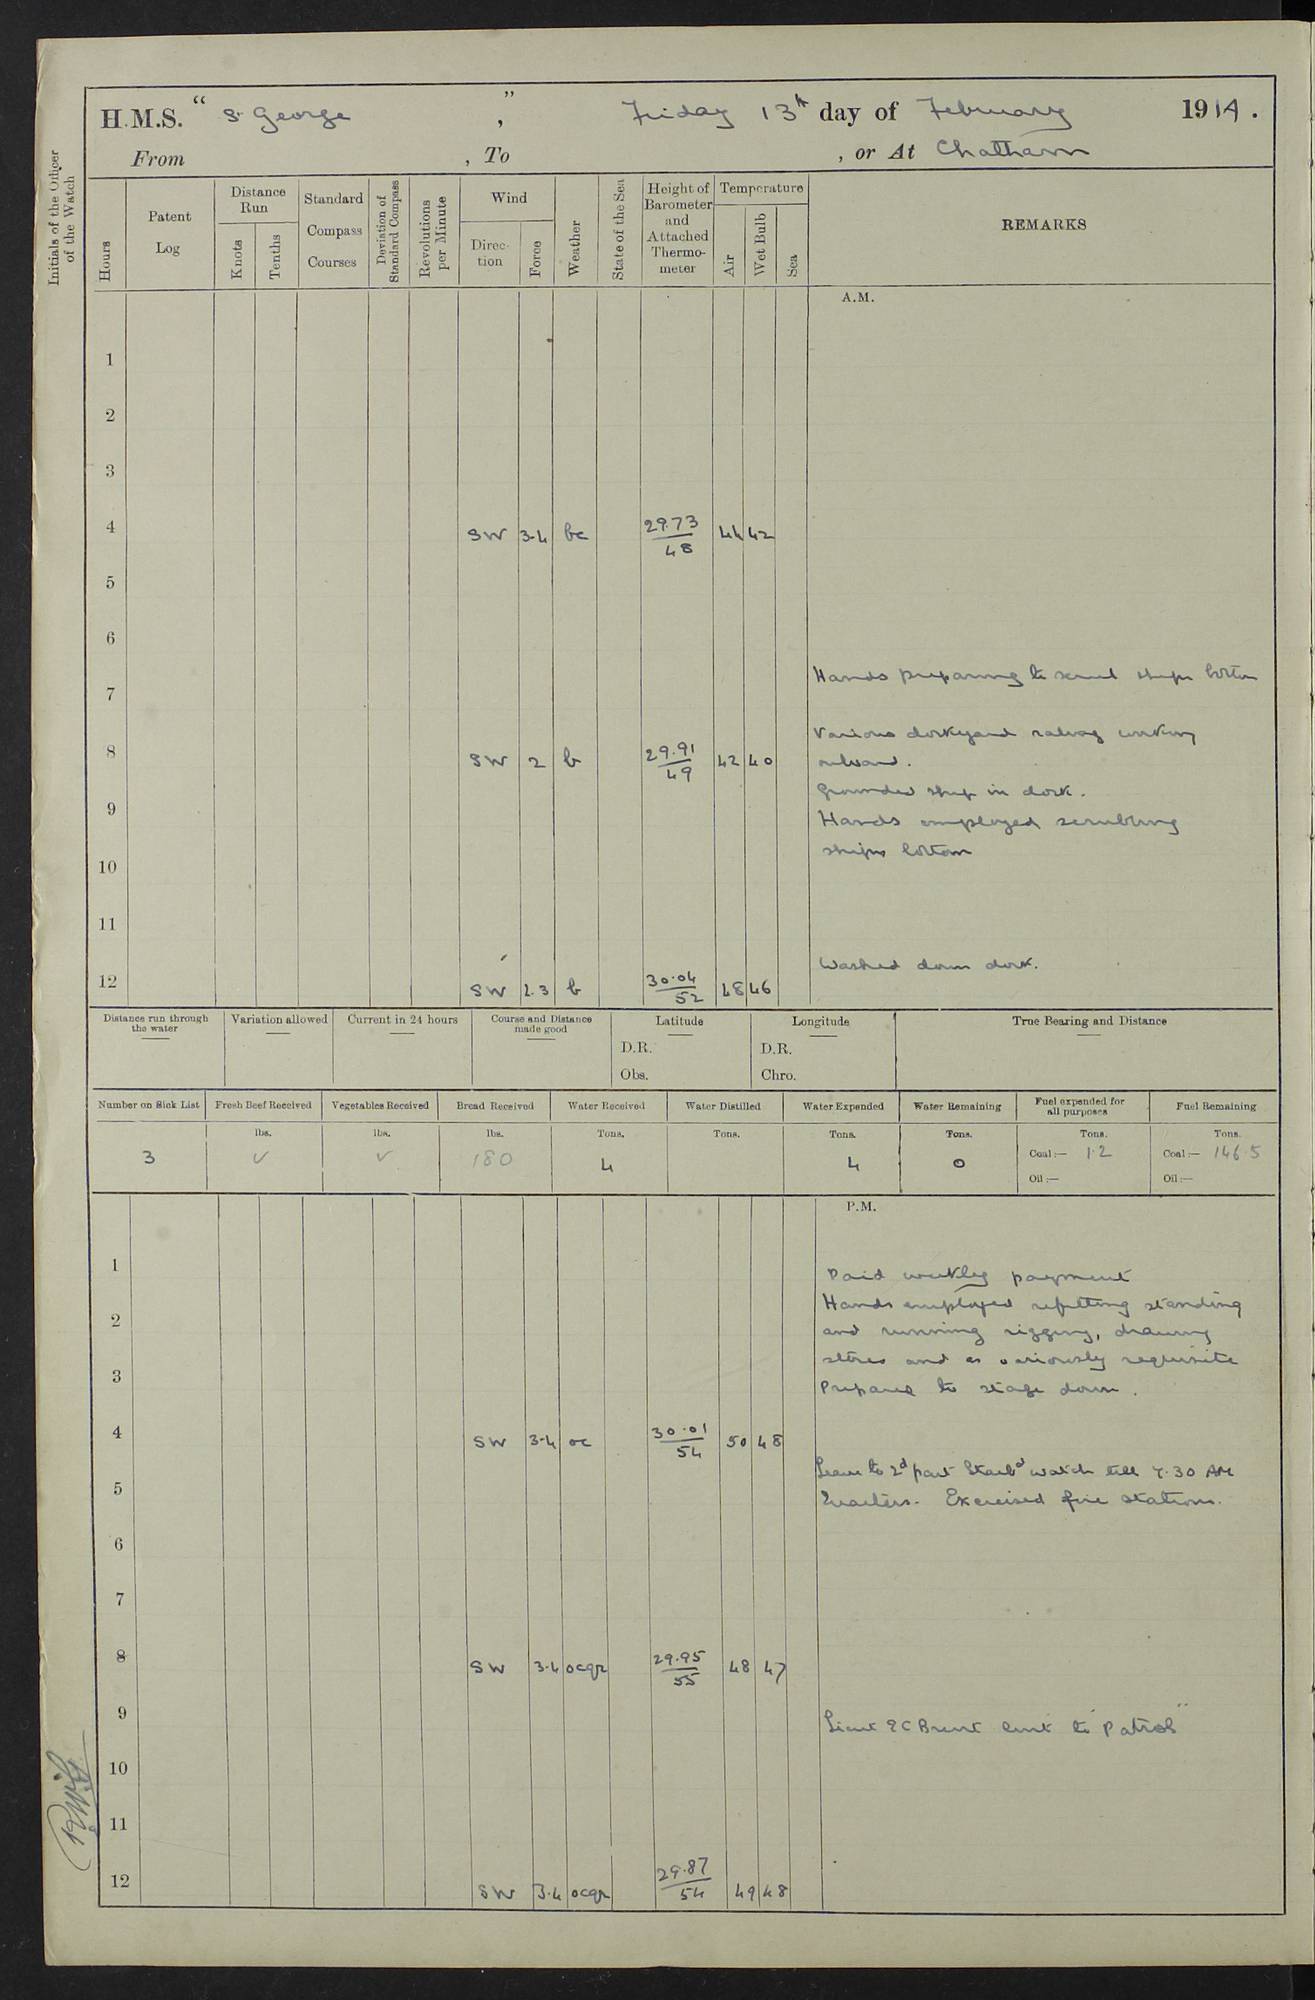 H.M.S. " St George " , Friday 13th day of February 1914.
From , To , or At Chatham
Initials of the Officer of the Watch
Hours
Patent Log
Distance Run
Knots
Tenths
Standard Compass Courses
Deviation of Standard Compass
Revolutions per Minute
Wind
Direction
Force
Weather
State of the Sea
Height of Barometer and Attached Thermometer
Temperature
Air
Wet Bulb
Sea
REMARKS
A.M.
1
2
3
4 SW 3-4 bc 29.73/48 44 42
5
6
Hands preparing to scrub ships bottom
7
Various dockyard ratings working
8 SW 2 b 29.91/49 42 40 onboard.
Grounded ship in dock.
9 Hands employed scrubbing
ships bottom
10
11
Washed down dock.
12 SW 2.3 b 30.04/52 48 46
Distance run through the water
Variation allowed
Current in 24 hours
Course and Distance made good
Latitude
D.R.
Obs.
Longitude
D.R.
Chro.
True Bearing and Distance
Number on Sick List Fresh Beef Received Vegetables Received Bread Received Water Received Water Distilled Water Expended Water Remaining Fuel expended for all purposes Fuel Remaining
lbs. lbs. lbs. Tons. Tons. Tons. Tons. Tons. Tons.
3 ✓ ✓ 180 4 4 0 Coal:— 1.2 Coal:— 146.5
Oil:— Oil:—
P.M.
1
Paid weekly payment
Hands employed refitting standing
2 and running rigging, drawing
stores and as variously requisite
3 Prepared to stage down.
4 SW 3-4 oc 30.01/54 50 48
Leave to 2d part Starbd watch till 7.30 AM
5 Quarters. Exercised fire stations.
6
7
8 SW 3.4 ocqr 29.95/55 48 47
9 Lieut Brent lent to "Patrol"
10
11
12 SW 3.4 ocqr 29.87/54 49 48